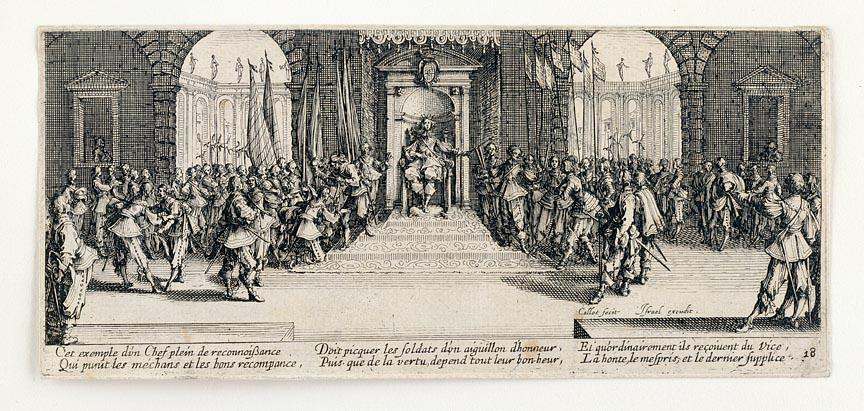 Callot fecit Israel excudit.
Cet exemple d'vn Chef plein de reconnoißance
Qui punit les mechans et les bons recompance,
Doit picquer les soldats d'vn aiguillon d'honneur,
Puis que de la vertu, depend tout leur bon-heur,
Et qu'ordinairement ils reçoiuent du Vice,
La honte, le mespris, et le dernier supplice.
18